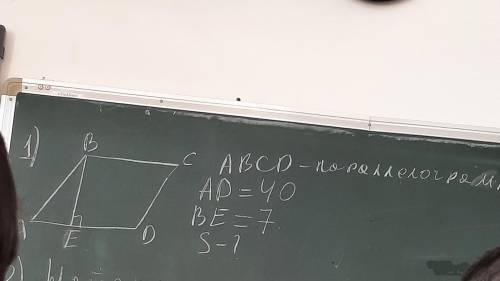 1)
B
C
A
E
D
ABCD - параллелограм
AD = 40
BE = 7
S - ?
2)